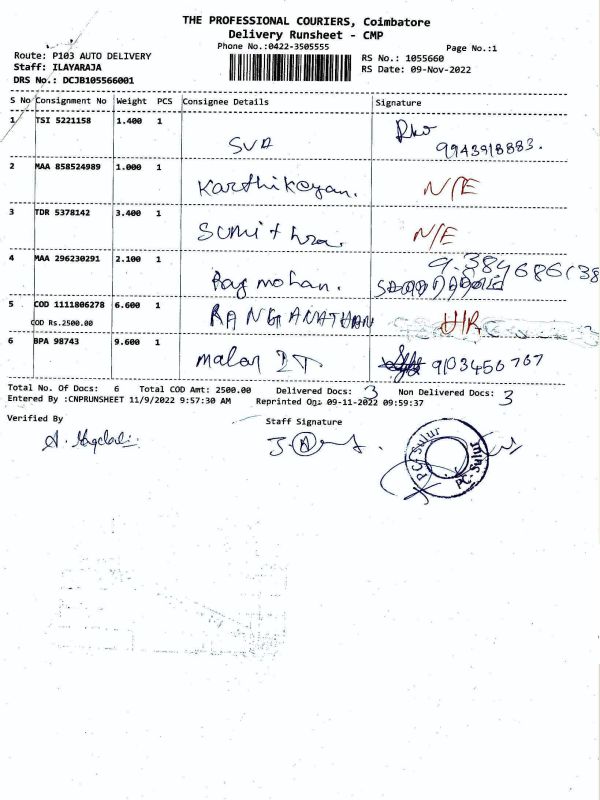 THE PROFESSIONAL COURIERS, Coimbatore
Delivery Runsheet - CMP
Phone No.:0422-3505555
Page No.:1
Route: P103 AUTO DELIVERY
RS No.: 1055660
Staff: ILAYARAJA
RS Date: 09-Nov-2022
DRS No.: DCJB105566001
S No Consignment No Weight PCS Consignee Details Signature
1 TSI 5221158 1.400 1
SVA 9943918883.
2 MAA 858524989 1.000 1
Karthikeyan. N/E
3 TDR 5378142 3.400 1
Sumithra N/E
4 MAA 296230291 2.100 1
Raj mohan.
5 COD 1111806278 6.600 1
RANGANATHAN
COD Rs.2500.00
6 BPA 98743 9.600 1
Malar IT 9103456767
Total No. Of Docs: 6 Total COD Amt: 2500.00 Delivered Docs: 3 Non Delivered Docs: 3
Entered By :CNPRUNSHEET 11/9/2022 9:57:30 AM Reprinted On: 09-11-2022 09:59:37
Verified By
Staff Signature
PC-Sulur
PC-Sulur